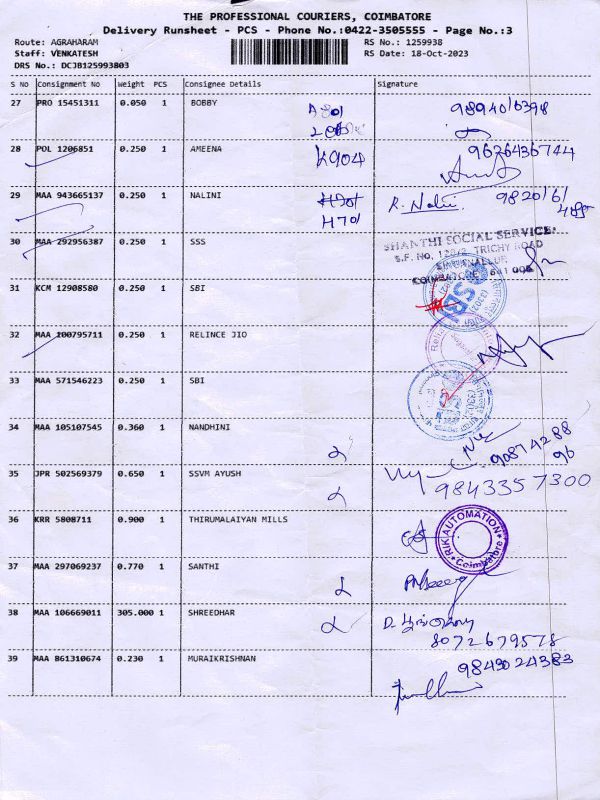 THE PROFESSIONAL COURIERS, COIMBATORE
Delivery Runsheet - PCS - Phone No.:0422-3505555 - Page No.:3
Route: AGRAHARAM
Staff: VENKATESH
DRS No.: DCJB125993803
RS No.: 1259938
RS Date: 18-Oct-2023
S NO Consignment No Weight PCS Consignee Details Signature
27 PRO 15451311 0.050 1 BOBBY
28 POL 1206851 0.250 1 AMEENA K904 9626436744
29 MAA 943665137 0.250 1 NALINI H701 R. Nalini.
H701
30 MAA 292956387 0.250 1 SSS
SHANTHI SOCIAL SERVICE
S.F. No, TRICHY ROAD
SINGANALLUR
COIMBATORE
31 KCM 12908580 0.250 1 SBI
SBI
32 MAA 100795711 0.250 1 RELINCE JIO
33 MAA 571546223 0.250 1 SBI
34 MAA 105107545 0.360 1 NANDHINI
90874288
96
35 JPR 502569379 0.650 1 SSVM AYUSH 9843357300
36 KRR 5808711 0.900 1 THIRUMALAIYAN MILLS
RIK AUTOMATION
Coimbatore
37 MAA 297069237 0.770 1 SANTHI
38 MAA 106669011 305.000 1 SHREEDHAR
8072679578
39 MAA 861310674 0.230 1 MURAIKRISHNAN 9843024383